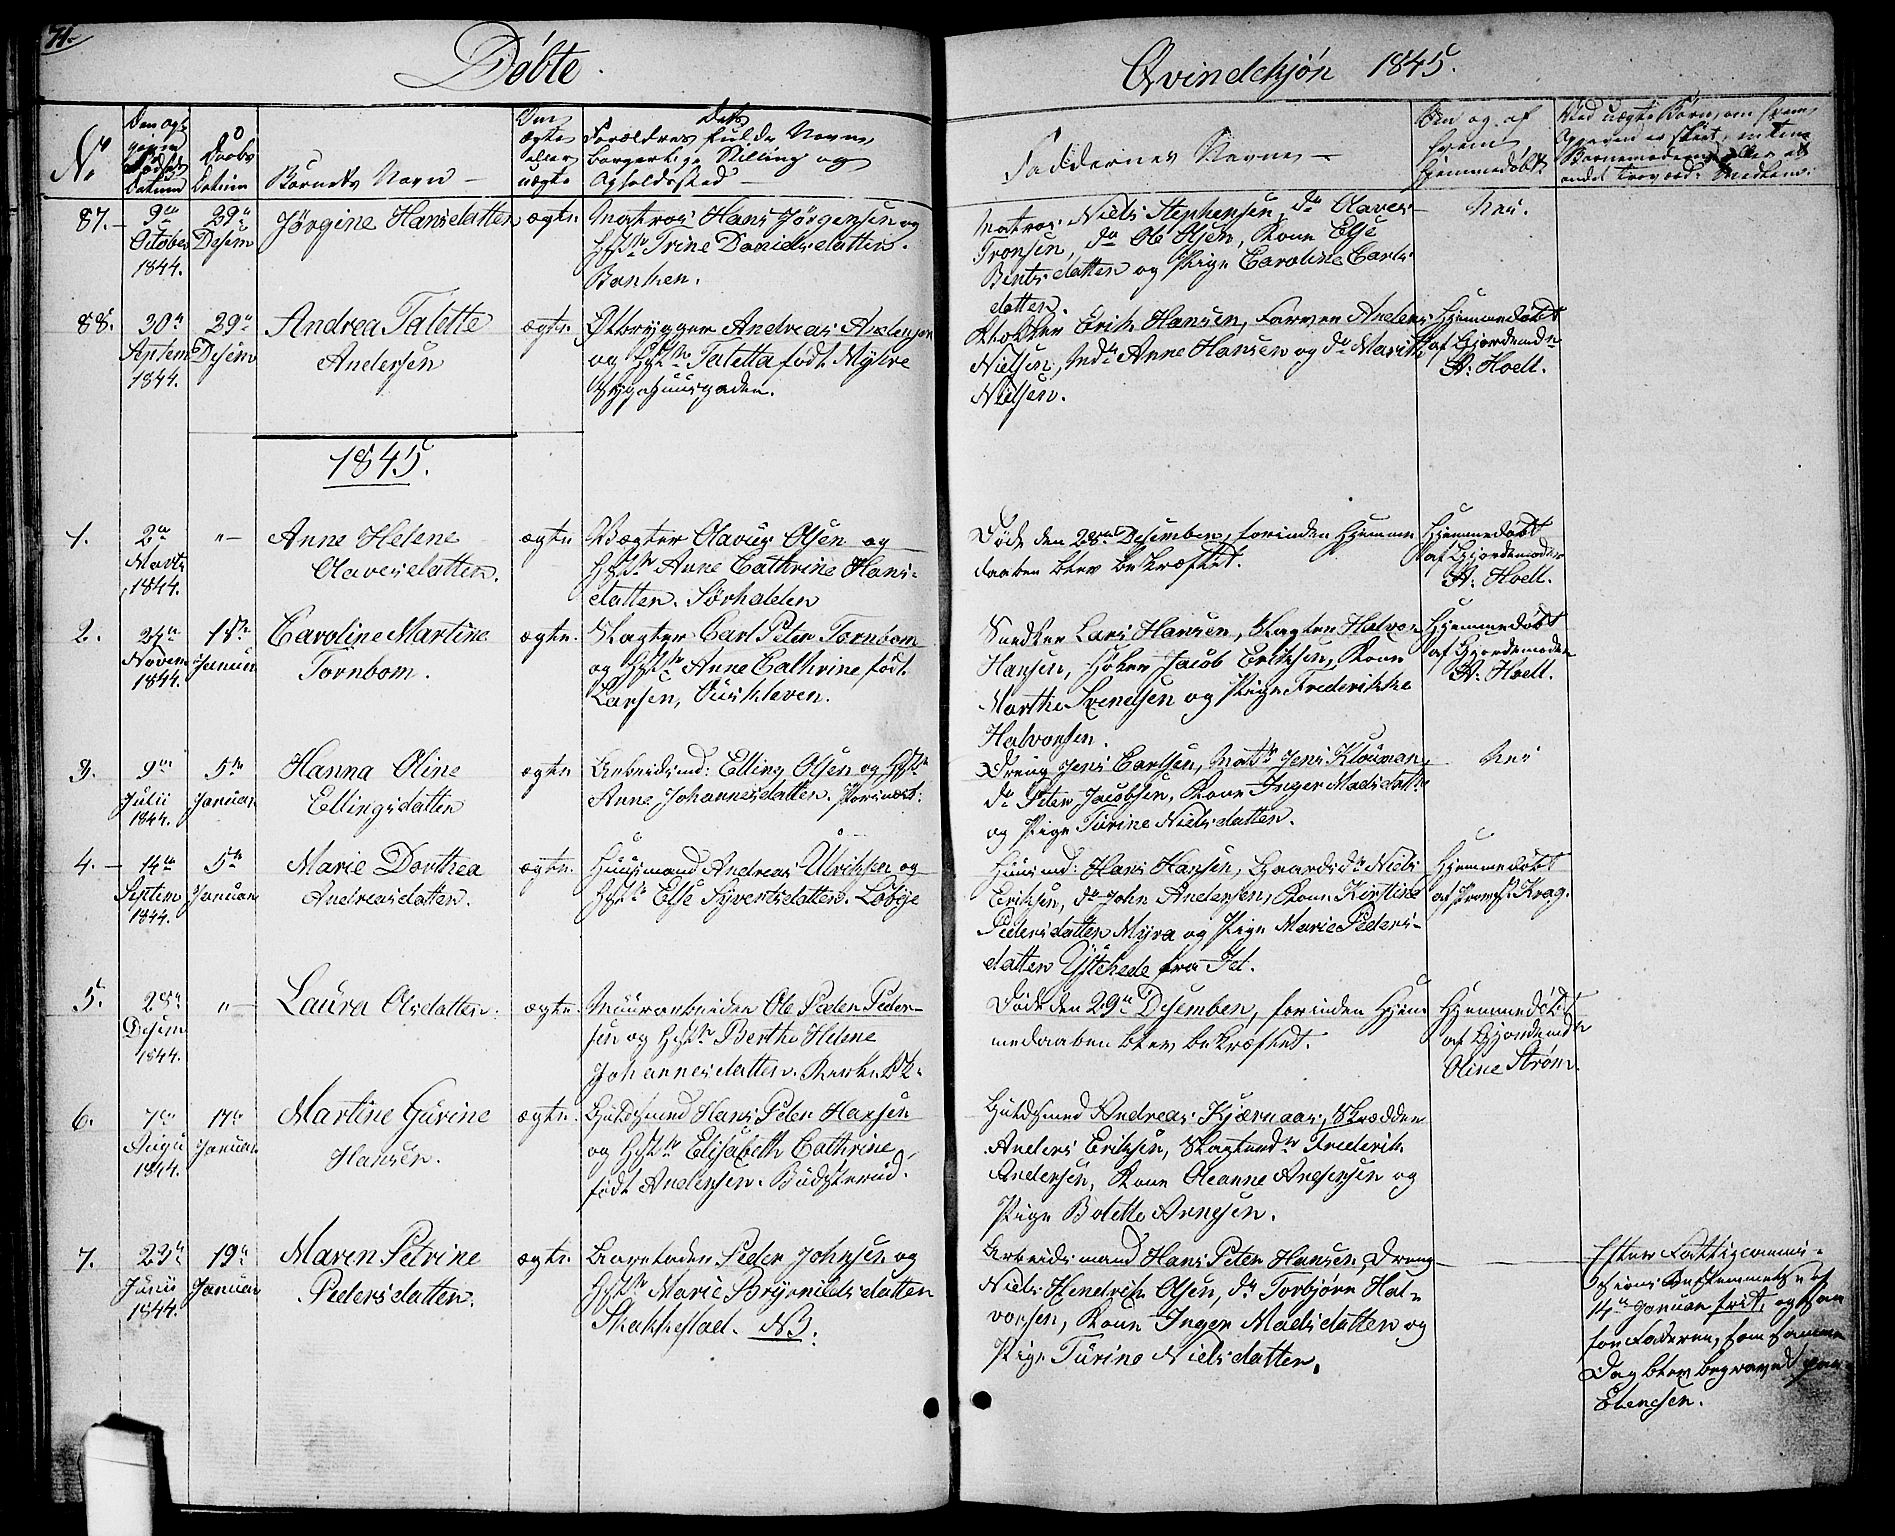 71.
Døbte.
Qvindekjøn 1845.
No
Daabs
Datum
Barnets Navn
ægte
eller
uægte
Forældres fulde Navne
borgerlige Stilling og
Opholdssted
Faddernes Navne
hjemmedøbt
87.
9de
October
1844.
29de
Desem
Jørgine Hansdatter
ægte
Matros Hans Jørgensen og
Hstr Trine Danielsdatter.
Banken.
Matros Niels Stephensen, do Olaves
Tronsen, do Ole Olsen, Kone Else
Bentsdatter og Pige Caroline Carls
datter.
Nei.
88.
30te
Septem
1844.
29de
Desem
Andrea Talette
Andersen
ægte
Ølbrygger Andreas Andersen
og Hstr Taletta født Myhre
Klokker Erik Hansen, Farver Anders
Nielsen, Anne Hansen og do Marith
Nielsen.
Hjemmedøbt
af Gjordemdr
A. Hoell.
1845.
1.
2de
Marts
1844.
"
Anne Helene
Olavesdatter.
ægte
Vægter Olaves Olsen og
Hstr Anne Cathrine Hans-
datter. Sørhalden
Døde den 28de Desember, forinden Hjemme
daaben blev bekræftet.
Hjemmedøbt
af Gjordemoder
A. Hoell.
2.
Novem
1844.
Januar
Caroline Martine
Tornbom.
ægte.
Slagter Carl Peter Tornbom
og Hstr Anne Cathrine født
Larsen,
Snedker Lars Hansen, Slagter Halvor
Hansen, Høker Jacob Eriksen, Kone
Marthe Svendsen og Pige Frederikke
Halvorsen.
Hjemmedøbt
af Gjordemoder
A. Hoell.
3.
9de
Julii
1844.
5te
Januar
Hanna Oline
Ellingsdatter
ægte
Arbeidsmd: Elling Olsen og Hstr
Anne Johannesdatter.
Dreng Jens Carlsen, Mats Jens Klouman,
do Peter Jacobsen, Kone Inger Madsdatter
og Pige Turine Nielsdatter.
Nei
4.
14de
Septem
1844.
5te
Januar
Marie Dorthea
Andreasdatter.
ægte
Huusmand Andreas Ulriksen og
Hstr Else Syvertsdatter. Løbye
Huusmd: Hans Hansen, Gaardsdr Niels
Eriksen, do John Andersen, Kone Kirstine
Pedersdatter Myra og Pige Marie Peders-
datter Ystehede fra Id.
Hjemmedøbt
af Krag.
5.
28de
Desem
1844.
"
Laura Olsdatter.
ægte
Muurarbeider Ole Peder Peder-
sen og Hstr Berthe Helene
Johannesdatter.
Døde den 29de Desember, forinden Hjem
medaaben blev bekræftet.
Hjemmedøbt
af Gjordemdr
Oline Strøm.
6.
7de
Augu
1844.
17de
Januar
Martine Gurine
Hansen.
ægte.
Guldsmed Hans Peter Hansen
og Hstr Elisabeth Cathrine,
født Andersen. Budsterud.
Guldsmed Andreas Kjærnaas, Skrædder
Anders Eriksen, Frederik
Andersen, Kone Oleanne Andersen og
Pige Bolette Arnesen.
7.
23de
Junii
1844.
19de
Januar
Maren Petrine
Pedersdatter.
ægte
Peder Johnsen og
Hstr Marie Brynildsdatter
Skakkestad. NB.
Arbeidsmand Hans Peter Hansen, Dreng
Niels Hendrik Olsen, do Torbjørn Hal-
vorsen, Kone Inger Madsdatter og
Pige Turine Nielsdatter.
Efter Fattigcommis-
sionens Bestemmelse af
14de Januar frit, ogsaa
for Faderen, som samme
Dag blev begravet